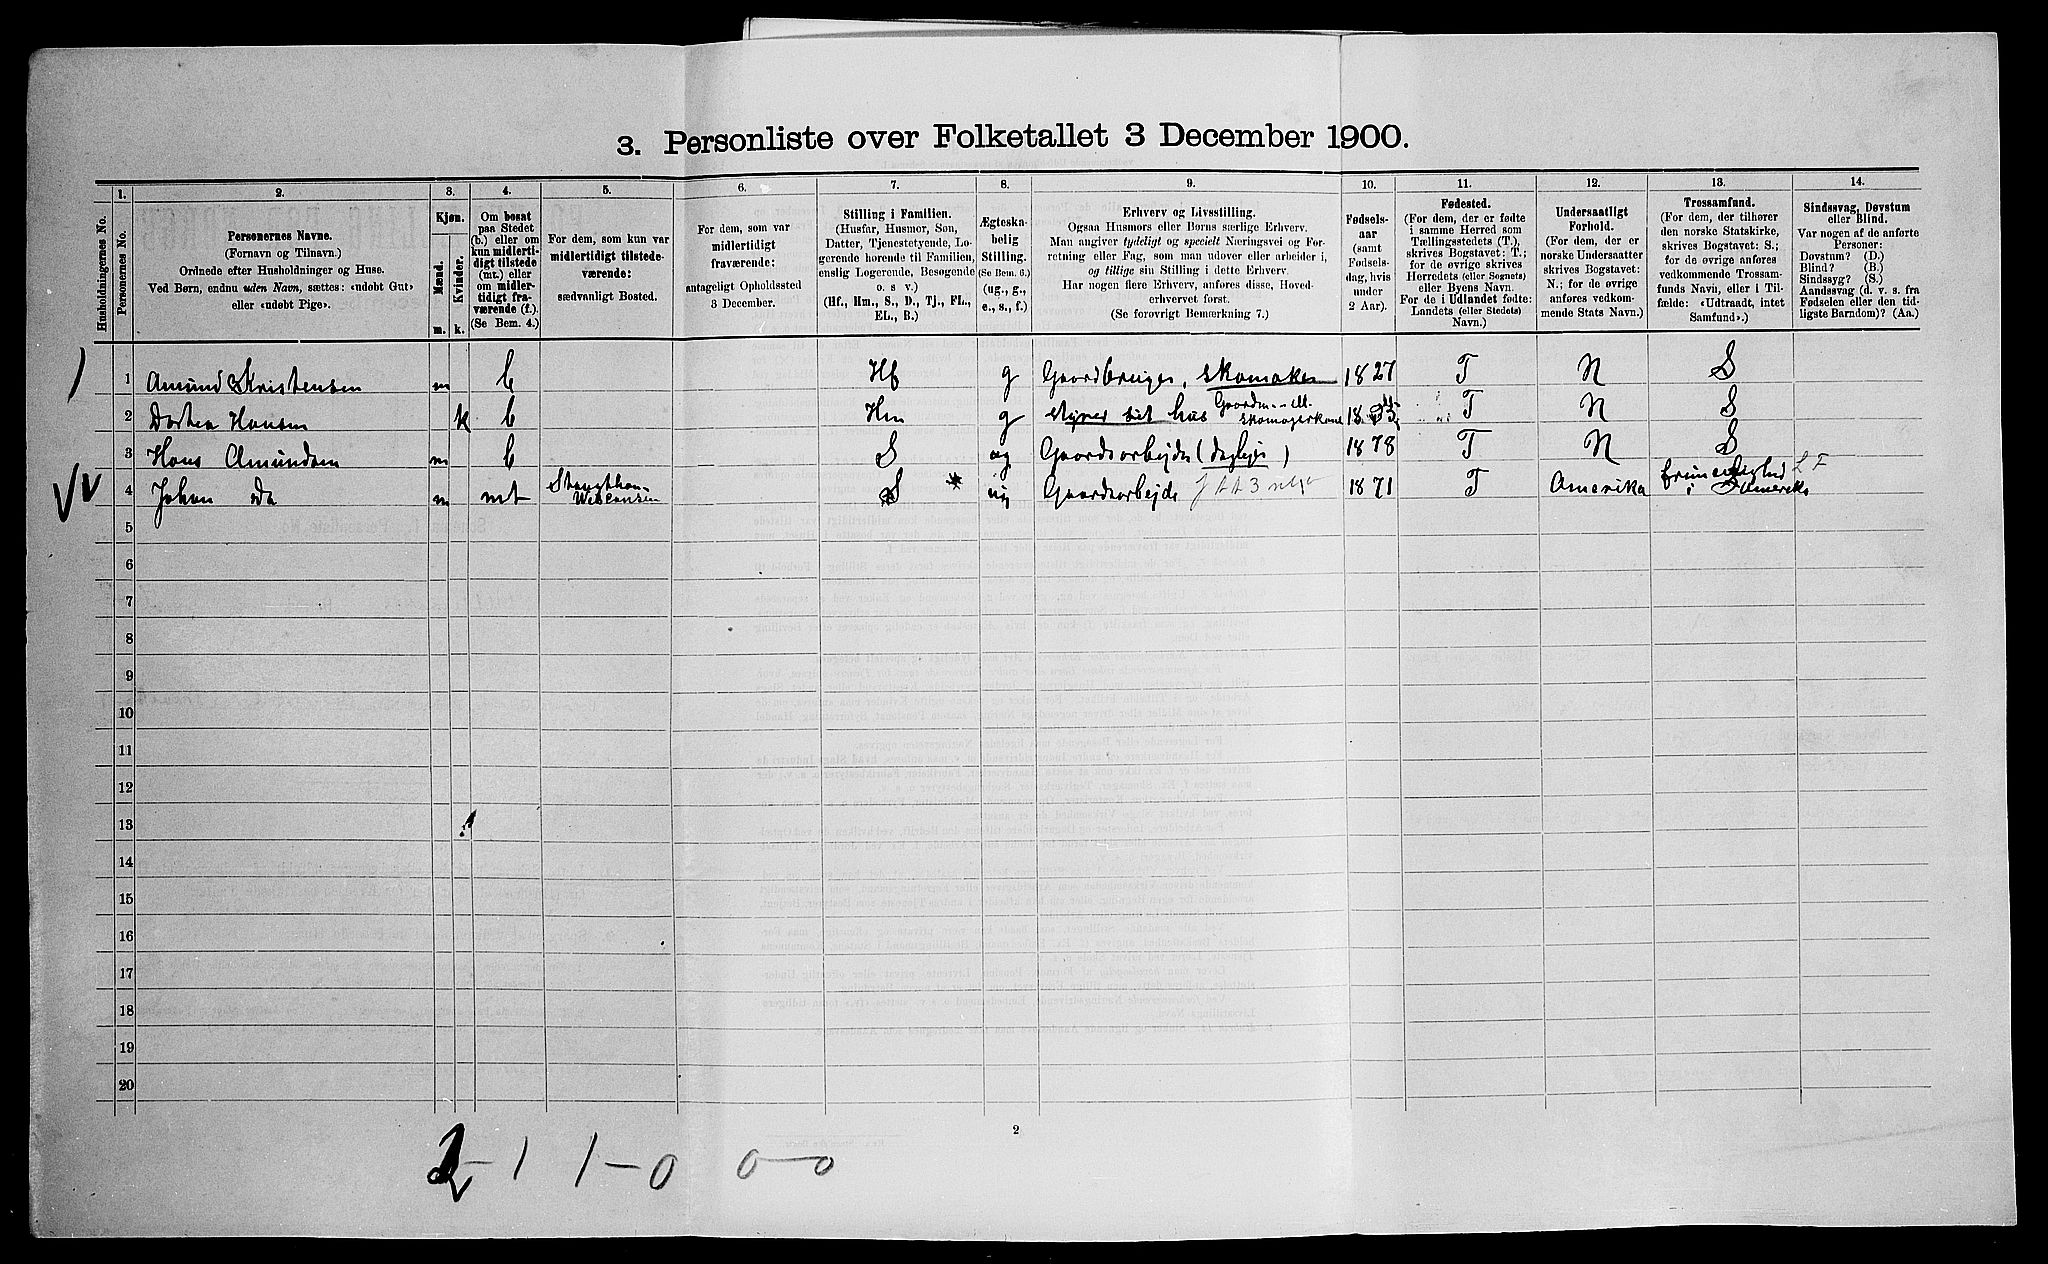 3. Personliste over Folketallet 3 December 1900.
Husholdningernes No.
1.
Personernes No.
2.
Personernes Navne.
(Fornavn og Tilnavn.)
Ordnede efter Husholdninger og Huse.
Ved Børn, endnu uden Navn, sættes: «udøbt Gut»
eller «udøbt Pige».
3.
Kjøn.
Mænd.
Kvinder.
m. k.
4.
Om bosat
paa Stedet
(b.) eller om
kun midlerti-
digt tilstede
(mt.) eller
om midler-
tidigt fra-
værende (f.).
(Se Bem. 4.)
5.
For dem, som kun var
midlertidigt tilstede-
værende:
sædvanligt Bosted.
6.
For dem, som var
midlertidigt
fraværende:
antageligt Opholdssted
3 December.
7.
Stilling i Familien.
(Husfar, Husmor, Søn,
Datter, Tjenestetyende, Lo-
gerende hørende til Familien,
enslig Logerende, Besøgende
o. s. v.)
(Hf., Hm., S., D., Tj., FL.,
EL., B.)
8.
Ægteska-
belig
Stilling.
(Se Bem. 6.)
(ug., g.,
e., s., f.)
9.
Erhverv og Livsstilling.
Ogsaa Husmors eller Børns særlige Erhverv.
Man angiver tydeligt og specielt Næringsvei og For-
retning eller Fag, som man udøver eller arbeider i,
og tillige sin Stilling i dette Erhverv.
Har nogen flere Erhverv, anføres disse, Hoved-
erhvervet først.
(Se forøvrigt Bemærkning 7.)
10.
Fødsels-
aar
(samt
Fødsels-
dag, hvis
under
2 Aar).
11.
Fødested.
(For dem, der er fødte
i samme Herred som
Tællingsstedets (T.),
skrives Bogstavet: T.;
for de øvrige skrives
Herredets (eller Sognets)
eller Byens Navn.
For de i Udlandet fødte:
Landets (eller Stedets)
Navn.)
12.
Undersaatligt
Forhold.
(For dem, der er
norske Undersaatter
skrives Bogstavet:
N.; for de øvrige
anføres vedkom-
mende Stats Navn.)
13.
Trossamfund.
(For dem, der tilhører
den norske Statskirke,
skrives Bogstavet: S.;
for de øvrige anføres
vedkommende Trossam-
funds Navn, eller i Til-
fælde: «Udtraadt, intet
Samfund».)
14.
Sindssvag, Døvstum
eller Blind.
Var nogen af de anførte
Personer:
Døvstum? (D.)
Blind? (B.)
Sindssyg? (S.)
Aandssvag (d. v. s. fra
Fødselen eller den tid-
ligste Barndom)? (Aa.)
1 Amund Kristensen m b Hf g Gaardbruger, skomaker 1827 T N S
2 Dortea Hansen k b Hm g styrer sit hus Gaardm skomagerkone T N S
3 Hans Amundsen m b S ug Gaardsarbejde (dagleje) 1878 T N S
4 Johan do m mt Staughton Wisconsin S * ug Gaardsarbejde 1871 T Amerika i Amerika LF
5
6
7
8
9
10
11
12
13
14
15
16
17
18
19
20
2
2-1 1-0 0-0